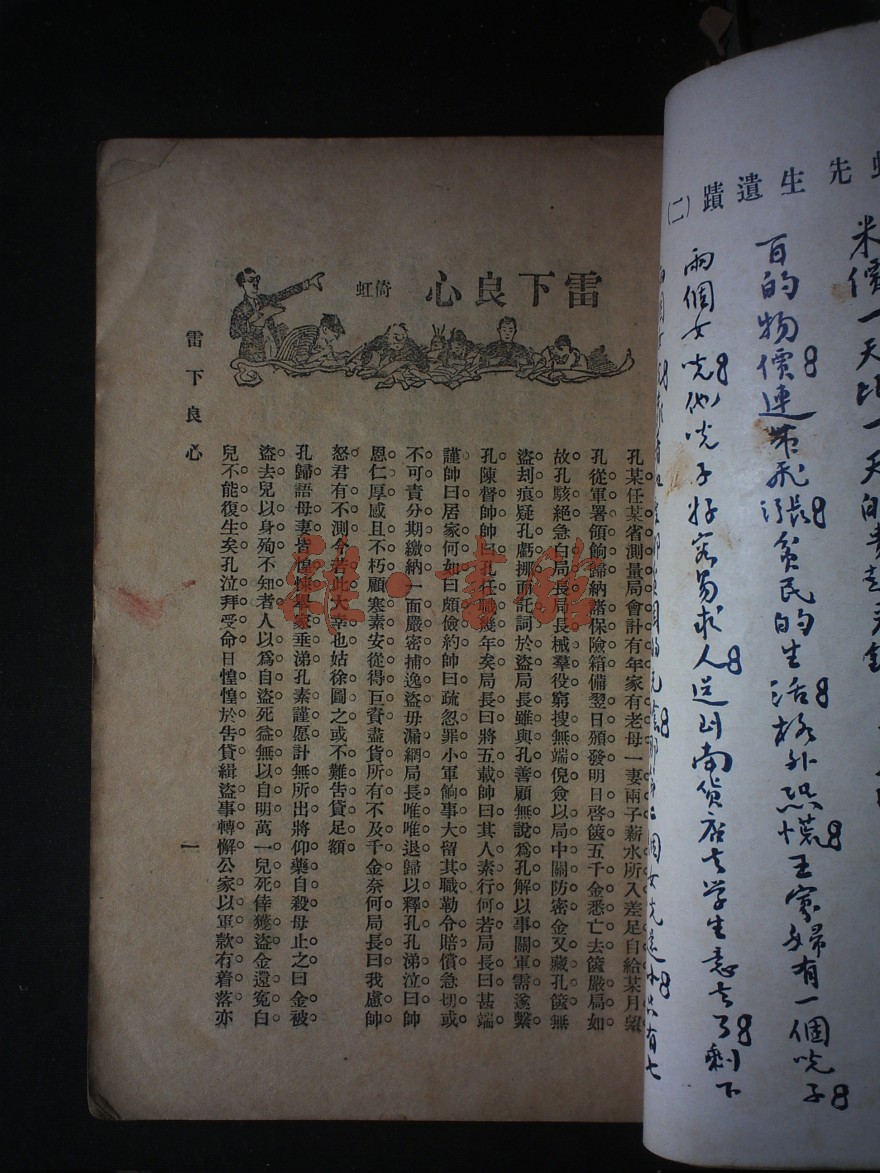 虹先生遺蹟(二)
米價一天比一天的貴
百的物價連帶飛漲貧民的生活格外恐慌王寡婦有一個兒子
兩個女兒他兒子好容易求人送到南貨店去学生意去了剩下
雷下良心
倚虹
孔某任某省測量局會計有年家有老母一妻兩子薪水所入差足自給某月
孔從軍署領餉歸納諸保險箱備翌日頒發明日啓篋五千金悉亡去篋嚴局如
故孔駭絕急白局長局長械羣役窮搜無端倪僉以局中關防密金又藏孔篋無
盜刦痕疑孔虧挪而託詞於盜局長雖與孔善顧無說爲孔解以事關軍需遂繫
孔陳督帥帥曰孔任職幾年矣局長曰將五載帥曰其人素行何若局長曰甚端
謹帥曰居家何如曰頗儉約帥曰疏忽罪小軍餉事大留其職勒令賠償急切或
不可責分期繳納一面嚴密捕逸盜毋漏網局長唯唯退歸以釋孔孔涕泣曰帥
恩仁厚感且不朽顧寒素安從得巨資盡貨所有不及千金奈何局長曰我慮帥
怒君有不測今若此大幸也姑徐圖之或不難告貸足額
孔歸語母妻皆惶悚舉家垂涕孔素謹愿計無所出將仰藥自殺母止之曰金被
盜去兒以身殉不知者人以爲自盜死益無以自明萬一兒死倖獲盜金還冤白
兒不能復生矣孔泣拜受命日惶惶於告貸緝盜事轉懈公家以軍款有着落亦
雷下良心
一